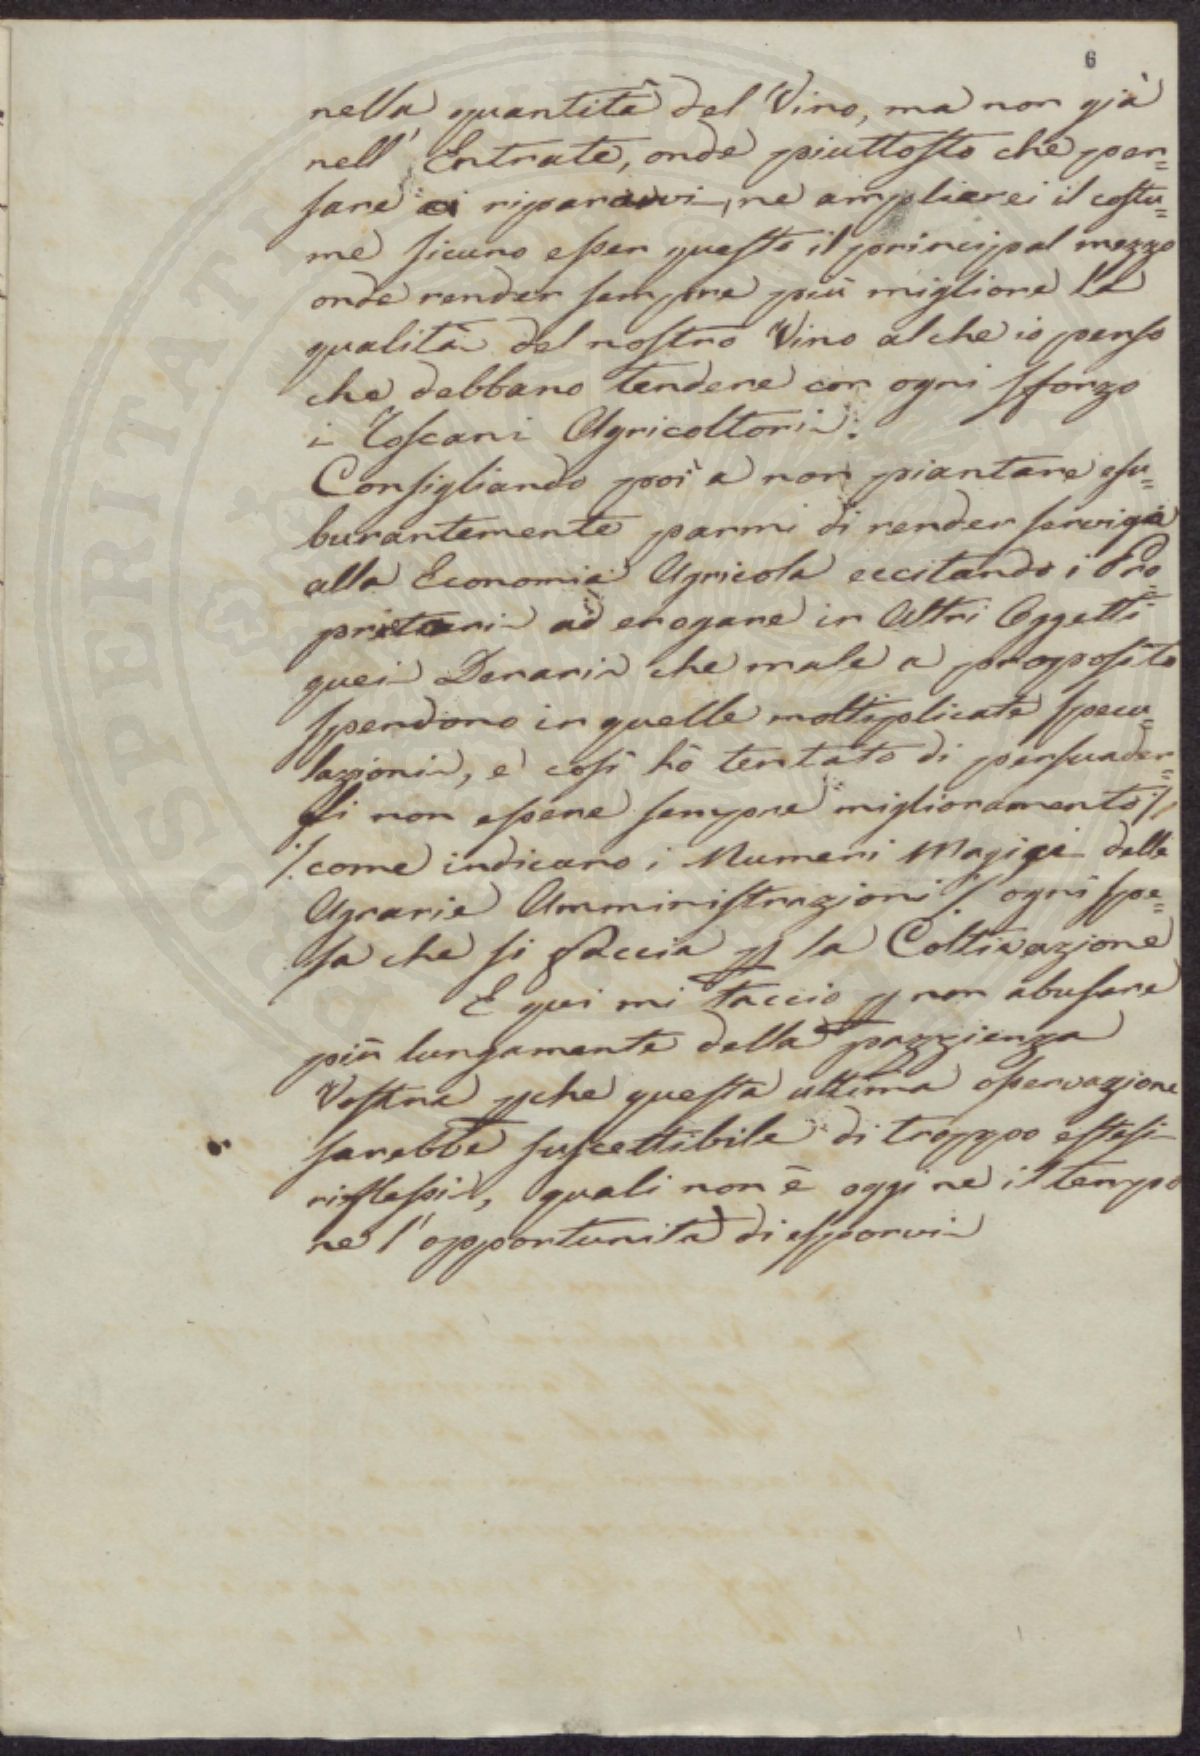 6
nella quantità del Vino, ma non già
nell' Entrate, onde piuttosto che pen=
sare a ripararvi, ne amplierei il costu=
me sicuro esser questo il principal mezzo
onde render sempre più migliore la
qualità del nostro Vino al che io penso
che debbano tendere con ogni sforzo
i Toscani Agricoltori.
Consigliando poi a non piantare esu=
burantemente parmi di render servigio
alla Economia Agricola eccitando i Pro=
prietari ad erogare in Altri Oggetti
quei Denari che male a proposito
spendono in quelle moltiplicate specu=
lazioni, e così hò tentato di persuader=
li non essere sempre miglioramento
/: come indicano i Numeri Magici delle
Agrarie Amministrazioni / ogni spe=
sa che si faccia p la Coltivazione
E qui mi taccio p non abusare
più lungamente della pazzienza
Vostra pche questa ultima osservazione
sarebbe suscettibile di troppo estesi
riflessi, quali non è oggi ne il tempo
ne l'opportunità di esporvi
PROSPERITATI